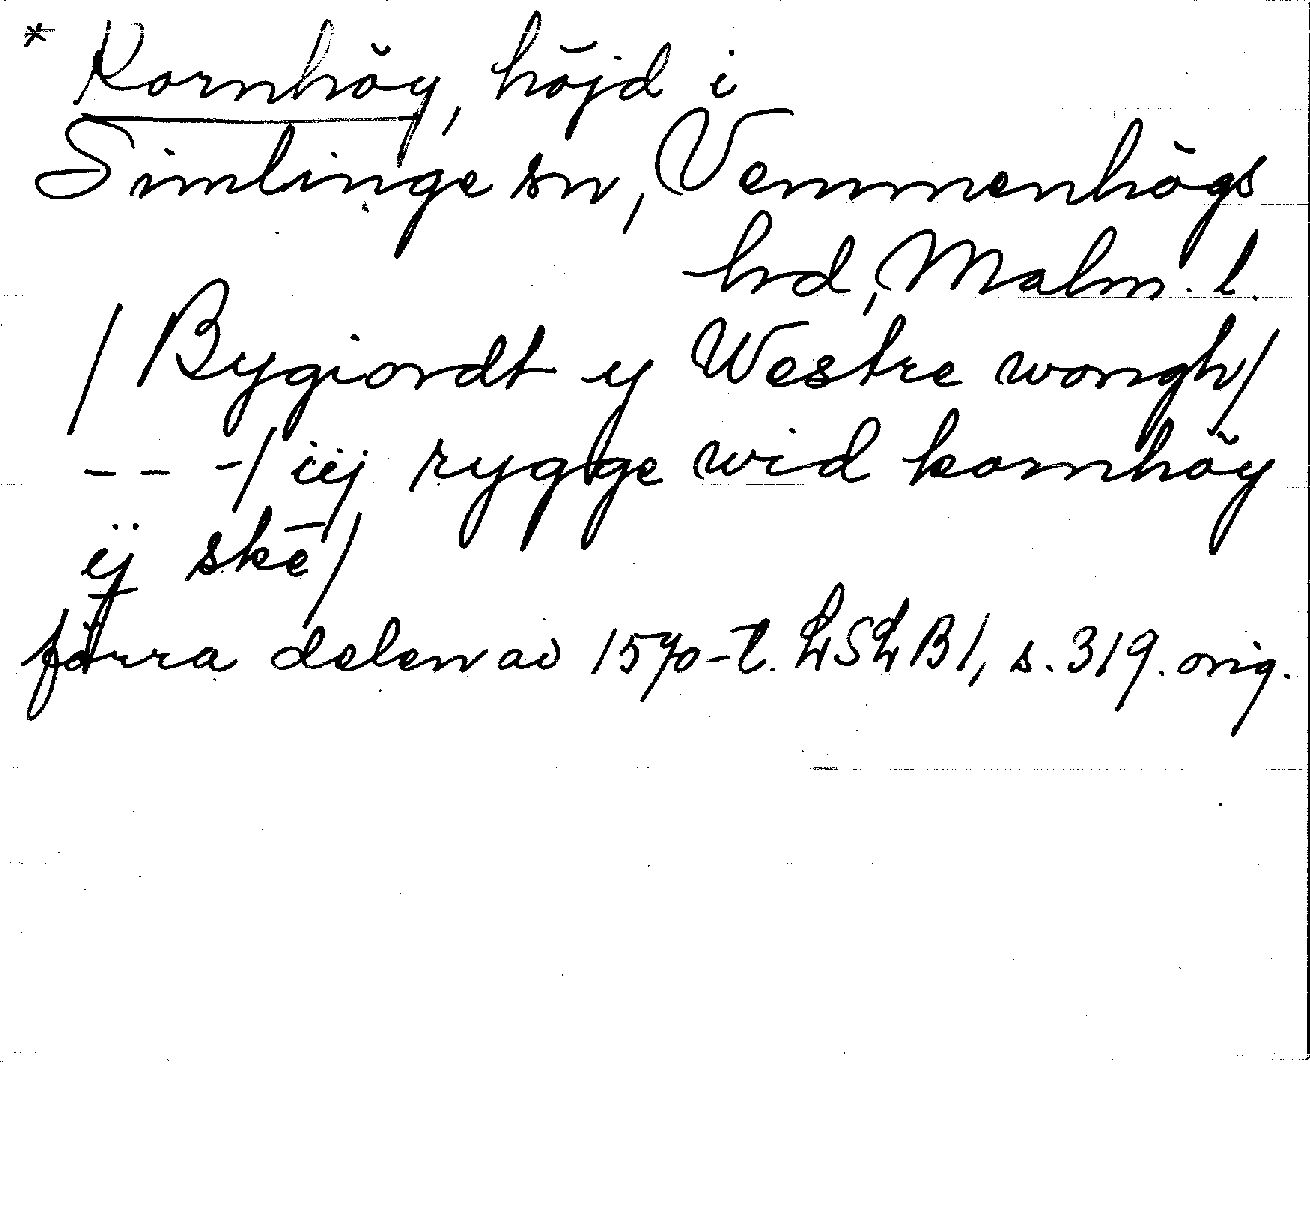 * Kornhöy, höjd i
Simlinge sn, Vemmenhögs
hrd, Malm. l.
/ Bygiordt y Westre wongh/
- - -/ iij rygge wid kornhöy
ij skē/
förra delen av 1570-t. LSLB1, s. 319. orig.